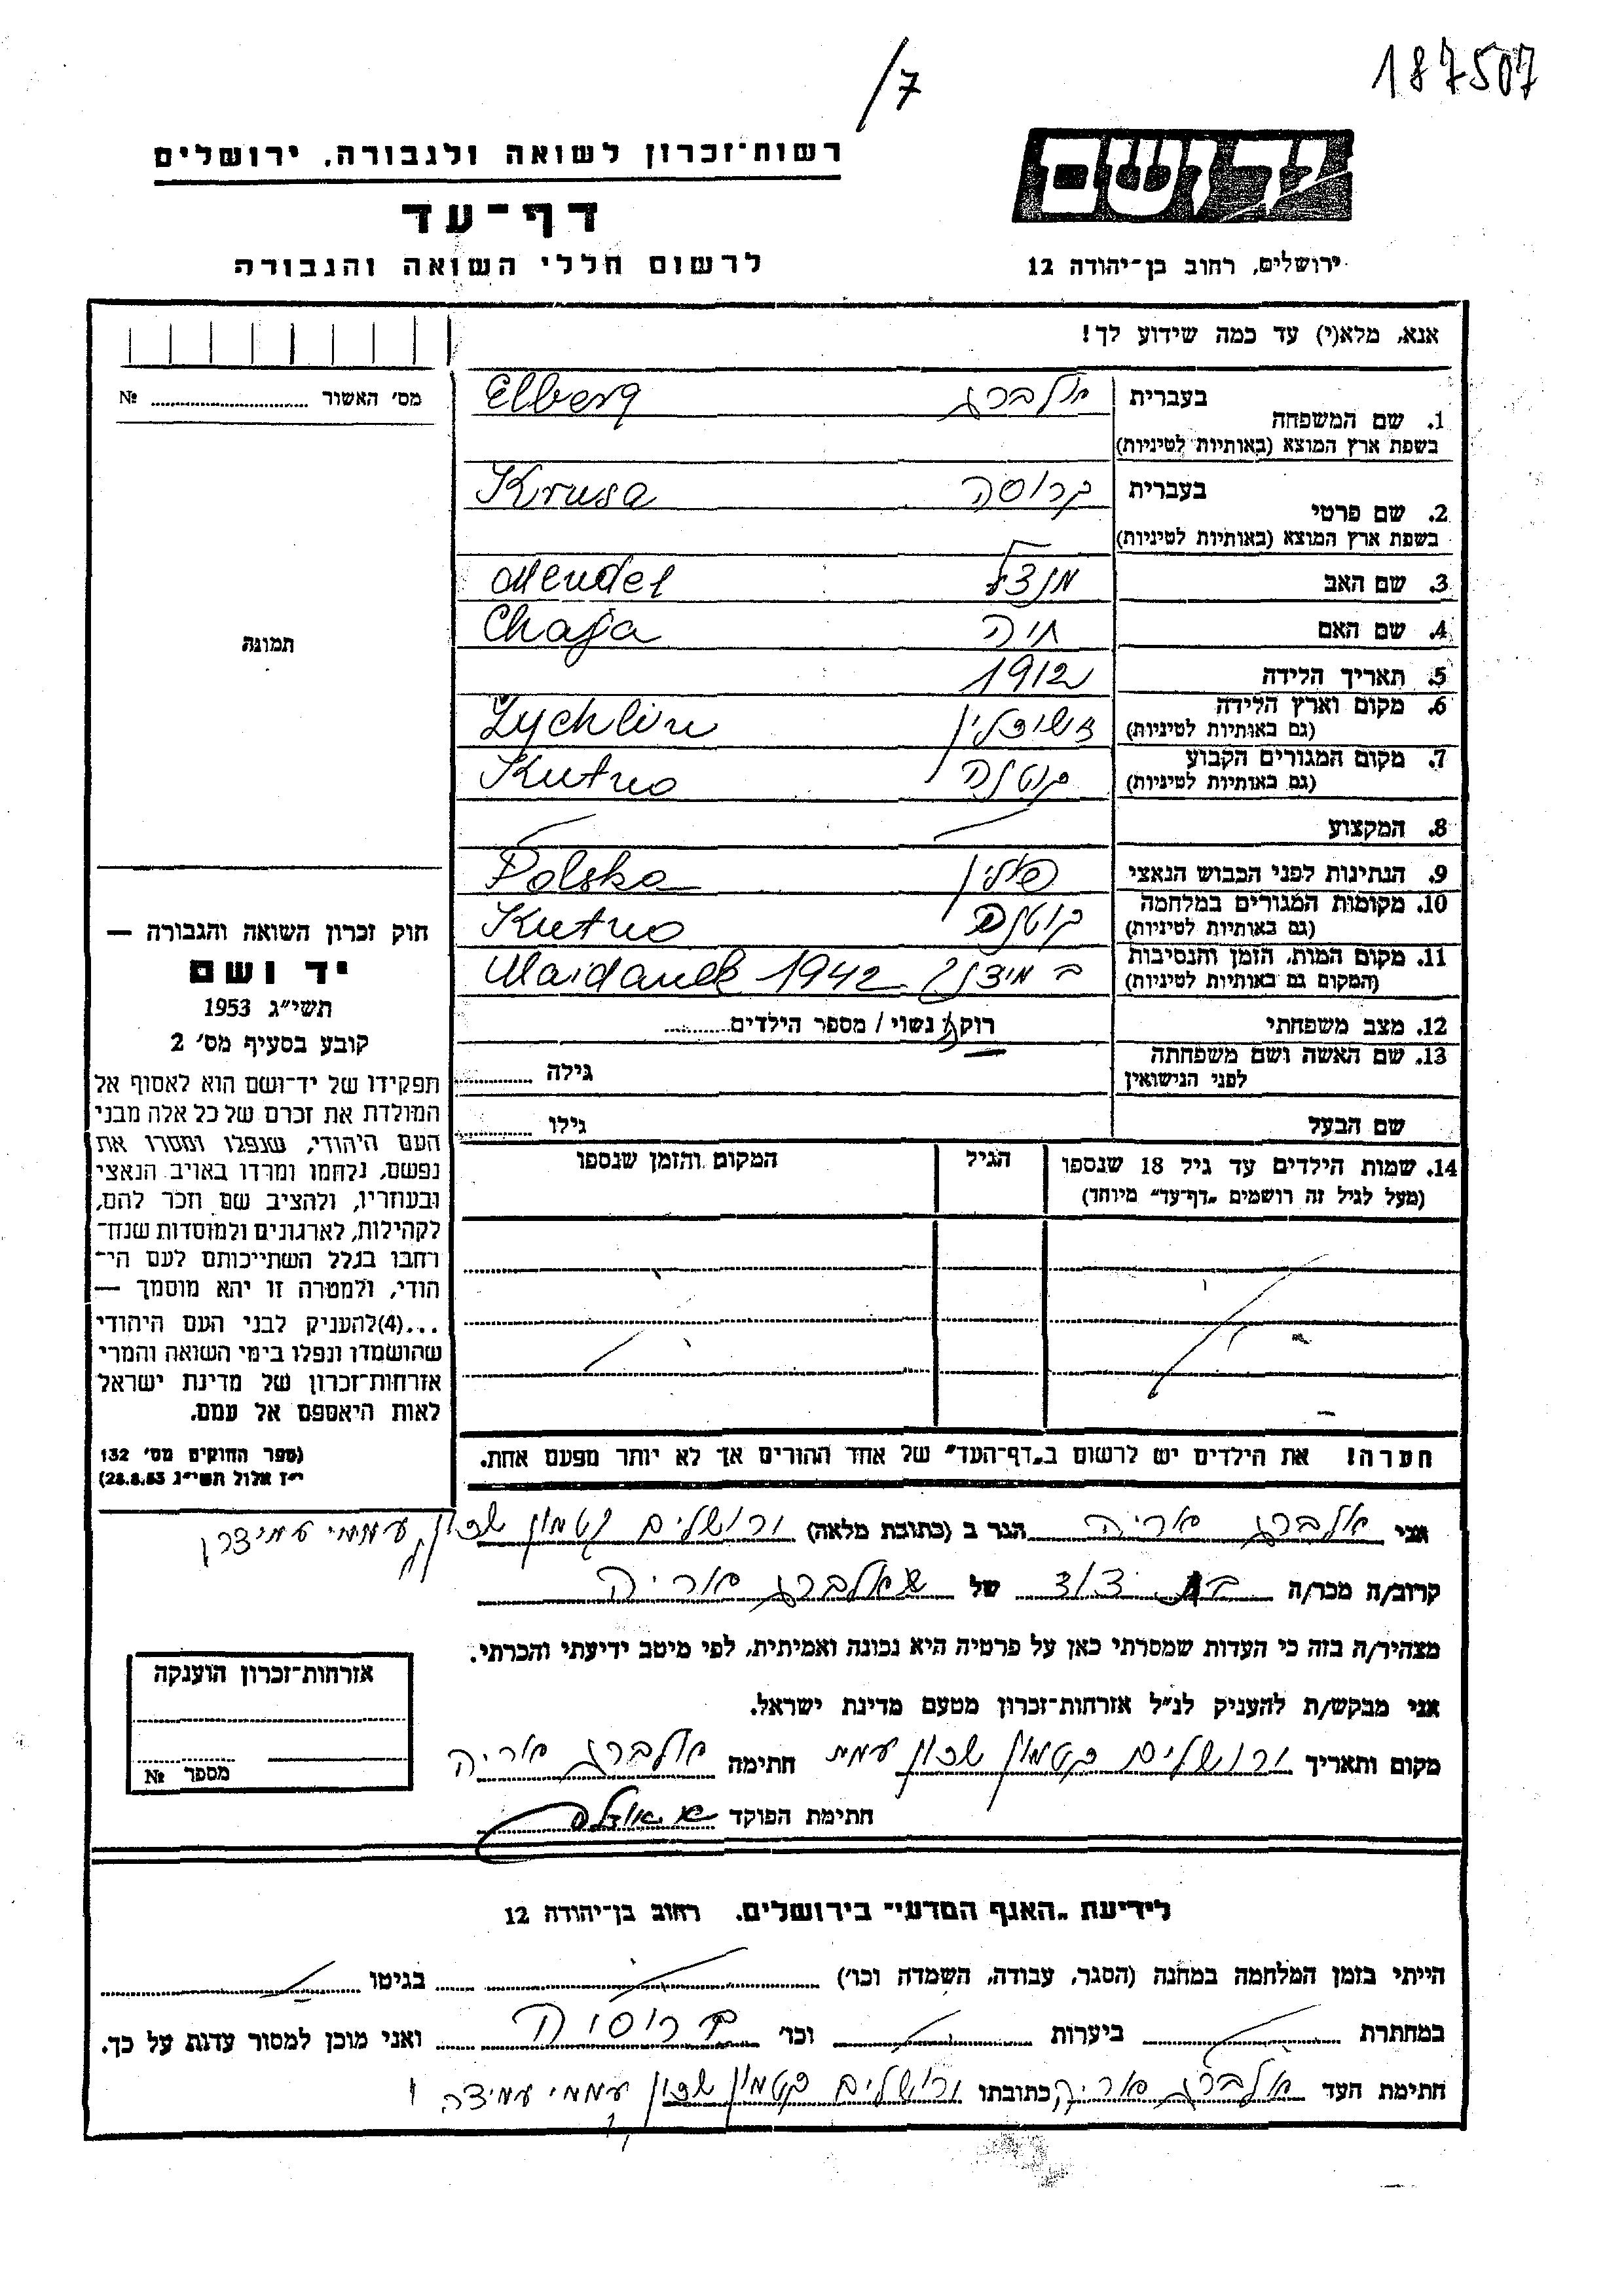 187507
/7
יד ושם
ירושלים, רחוב בן־יהודה 12
רשות־זכרון לשואה ולגבורה, ירושלים
דף־עד
לרשום חללי השואה והגבורה
אנא, מלא(י) עד כמה שידוע לך!
מס׳ האשור № 
1. שם המשפחה בעברית אלברג Elberg
בשפת ארץ המוצא (באותיות לטיניות)
2. שם פרטי בעברית קרוסה Krusa
בשפת ארץ המוצא (באותיות לטיניות)
3. שם האב מנדל Mendel
4. שם האם חיה Chaja
5. תאריך הלידה 1912
6. מקום וארץ הלידה Zychlin
(גם באותיות לטיניות)
7. מקום המגורים הקבוע קוטנה Kutno
(גם באותיות לטיניות)
8. המקצוע
9. הנתינות לפני הכבוש הנאצי פולין Polska
10. מקומות המגורים במלחמה Kutno
(גם באותיות לטיניות)
11. מקום המות, הזמן והנסיבות Maidanek 1942
(המקום גם באותיות לטיניות)
12. מצב משפחתי רוק/ נשוי / מספר הילדים
13. שם האשה ושם משפחתה גילה
לפני הנישואין
שם הבעל גילו
14. שמות הילדים עד גיל 18 שנספו הגיל המקום והזמן שנספו
(מעל לגיל זה רושמים „דף־עד״ מיוחד)
הערה! את הילדים יש לרשום ב„דף־העד״ של אחד ההורים אך לא יותר מפעם אחת.
תמונה
חוק זכרון השואה והגבורה —
יד ושם
תשי״ג 1953
קובע בסעיף מס׳ 2
תפקידו של יד־ושם הוא לאסוף אל
המולדת את זכרם של כל אלה מבני
העם היהודי, שנפלו ומסרו את
נפשם, נלחמו ומרדו באויב הנאצי
ובעוזריו, ולהציב שם וזכר להם,
לקהילות, לארגונים ולמוסדות שנח־
רחבו בגלל השתייכותם לעם הי־
הודי, ולמטרה זו יהא מוסמך —
...(4)להעניק לבני העם היהודי
שהושמדו ונפלו בימי השואה והמרי
אזרחות־זכרון של מדינת ישראל
לאות היאספם אל עמם.
(ספר החוקים מס׳ 132
י״ז אלול תשי״ג 28.8.53)
אני אלברג אריה הגר ב (כתובת מלאה) ירושלים קטמון שכון עממי
קרוב/ה מכר/ה של אלברג אריה
מצהיר/ה בזה כי העדות שמסרתי כאן על פרטיה היא נכונה ואמיתית, לפי מיטב ידיעתי והכרתי.
אני מבקש/ת להעניק לנ״ל אזרחות־זכרון מטעם מדינת ישראל.
מקום ותאריך ירושלים קטמון שכון חתימה אלברג אריה
חתימת הפוקד
אזרחות־זכרון הוענקה
מספר №
לידיעת „האגף המדעי״ בירושלים, רחוב בן־יהודה 12
הייתי בזמן המלחמה במחנה (הסגר, עבודה, השמדה וכו׳) בגיטו
במחתרת ביערות וכו׳ ברוסיה ואני מוכן למסור עדות על כך.
חתימת העד אלברג אריה כתובתו ירושלים קטמון שכון עממי